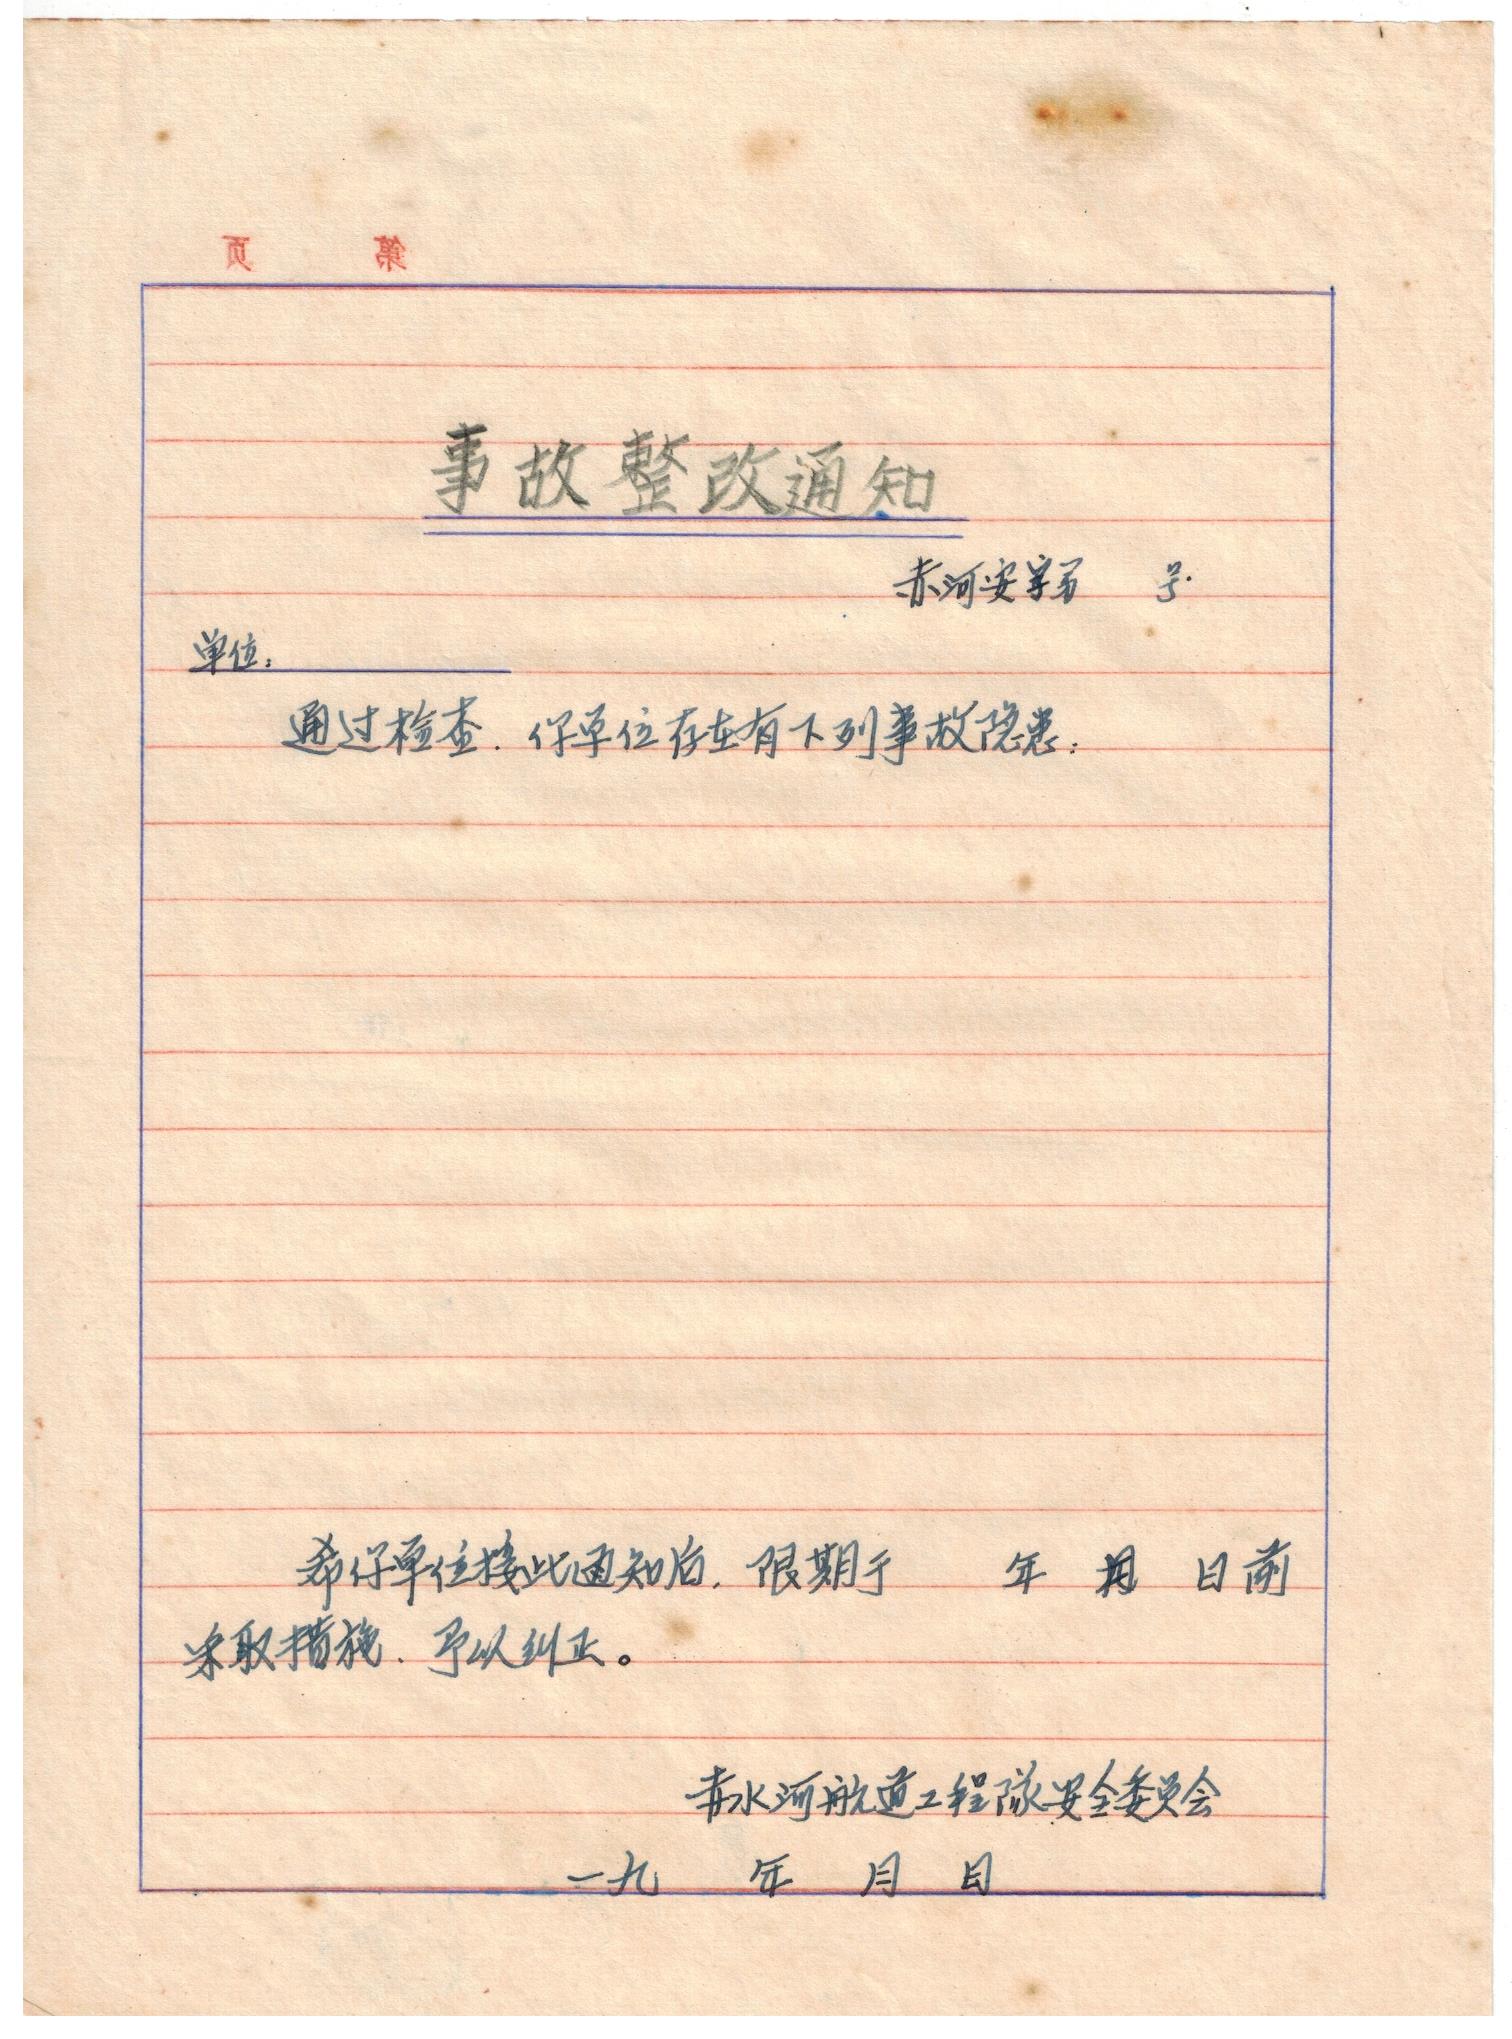 第 页
事故整改通知
赤河安字第 号
单位:
通过检查.你单位存在有下列事故隐患:
希你单位接此通知后.限期于 年 月 日前
采取措施.予以纠正。
赤水河航道工程队安全委员会
一九 年 月 日